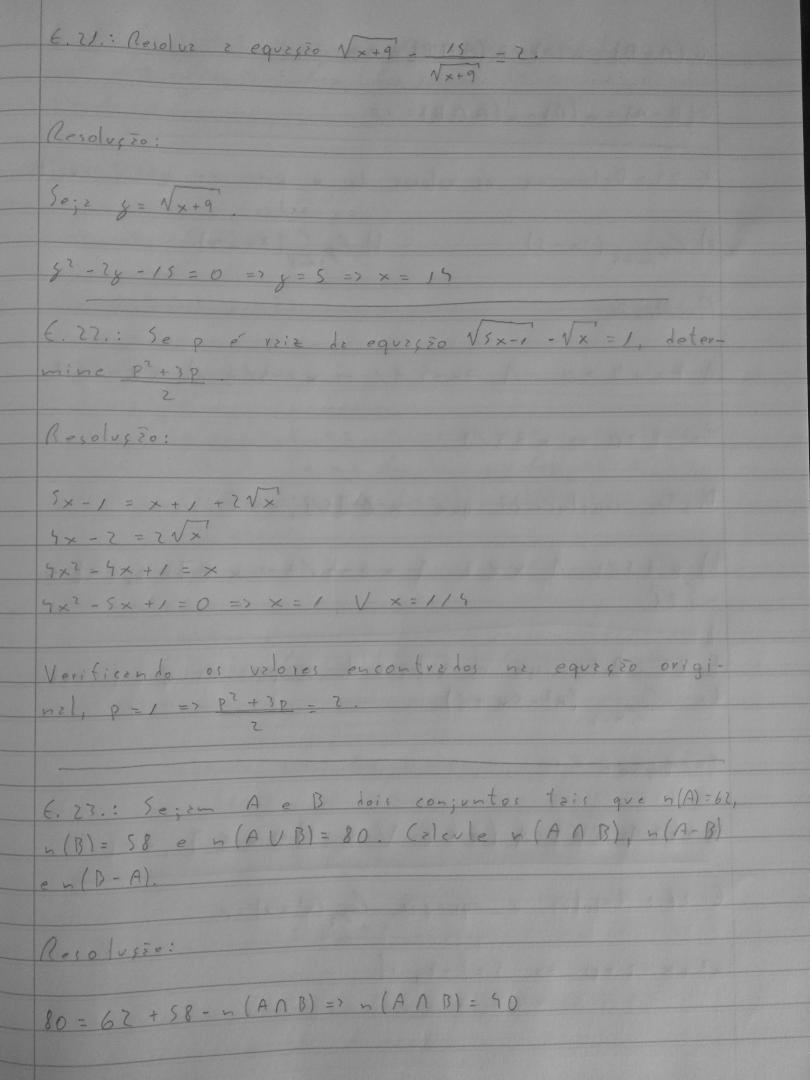 E. 21.: Resolva a equação √(x+9) - 15/√(x+9) = 2.
Resolução:
Seja y = √(x+9).
y² - 2y - 15 = 0 => y = 5 => x = 14
E. 22.: Se p é raiz da equação √(5x-1) - √x = 1, deter-
mine (p² + 3p)/2.
Resolução:
5x - 1 = x + 1 + 2√x
4x - 2 = 2√x
4x² - 4x + 1 = x
4x² - 5x + 1 = 0 => x = 1 V x = 1/4
Verificando os valores encontrados na equação origi-
nal, p = 1 => (p² + 3p)/2 = 2.
E. 23.: Sejam A e B dois conjuntos tais que n(A) = 62,
n(B) = 58 e n(A ∪ B) = 80. Calcule n(A ∩ B), n(A - B)
e n(B - A).
Resolução:
80 = 62 + 58 - n(A ∩ B) => n(A ∩ B) = 40